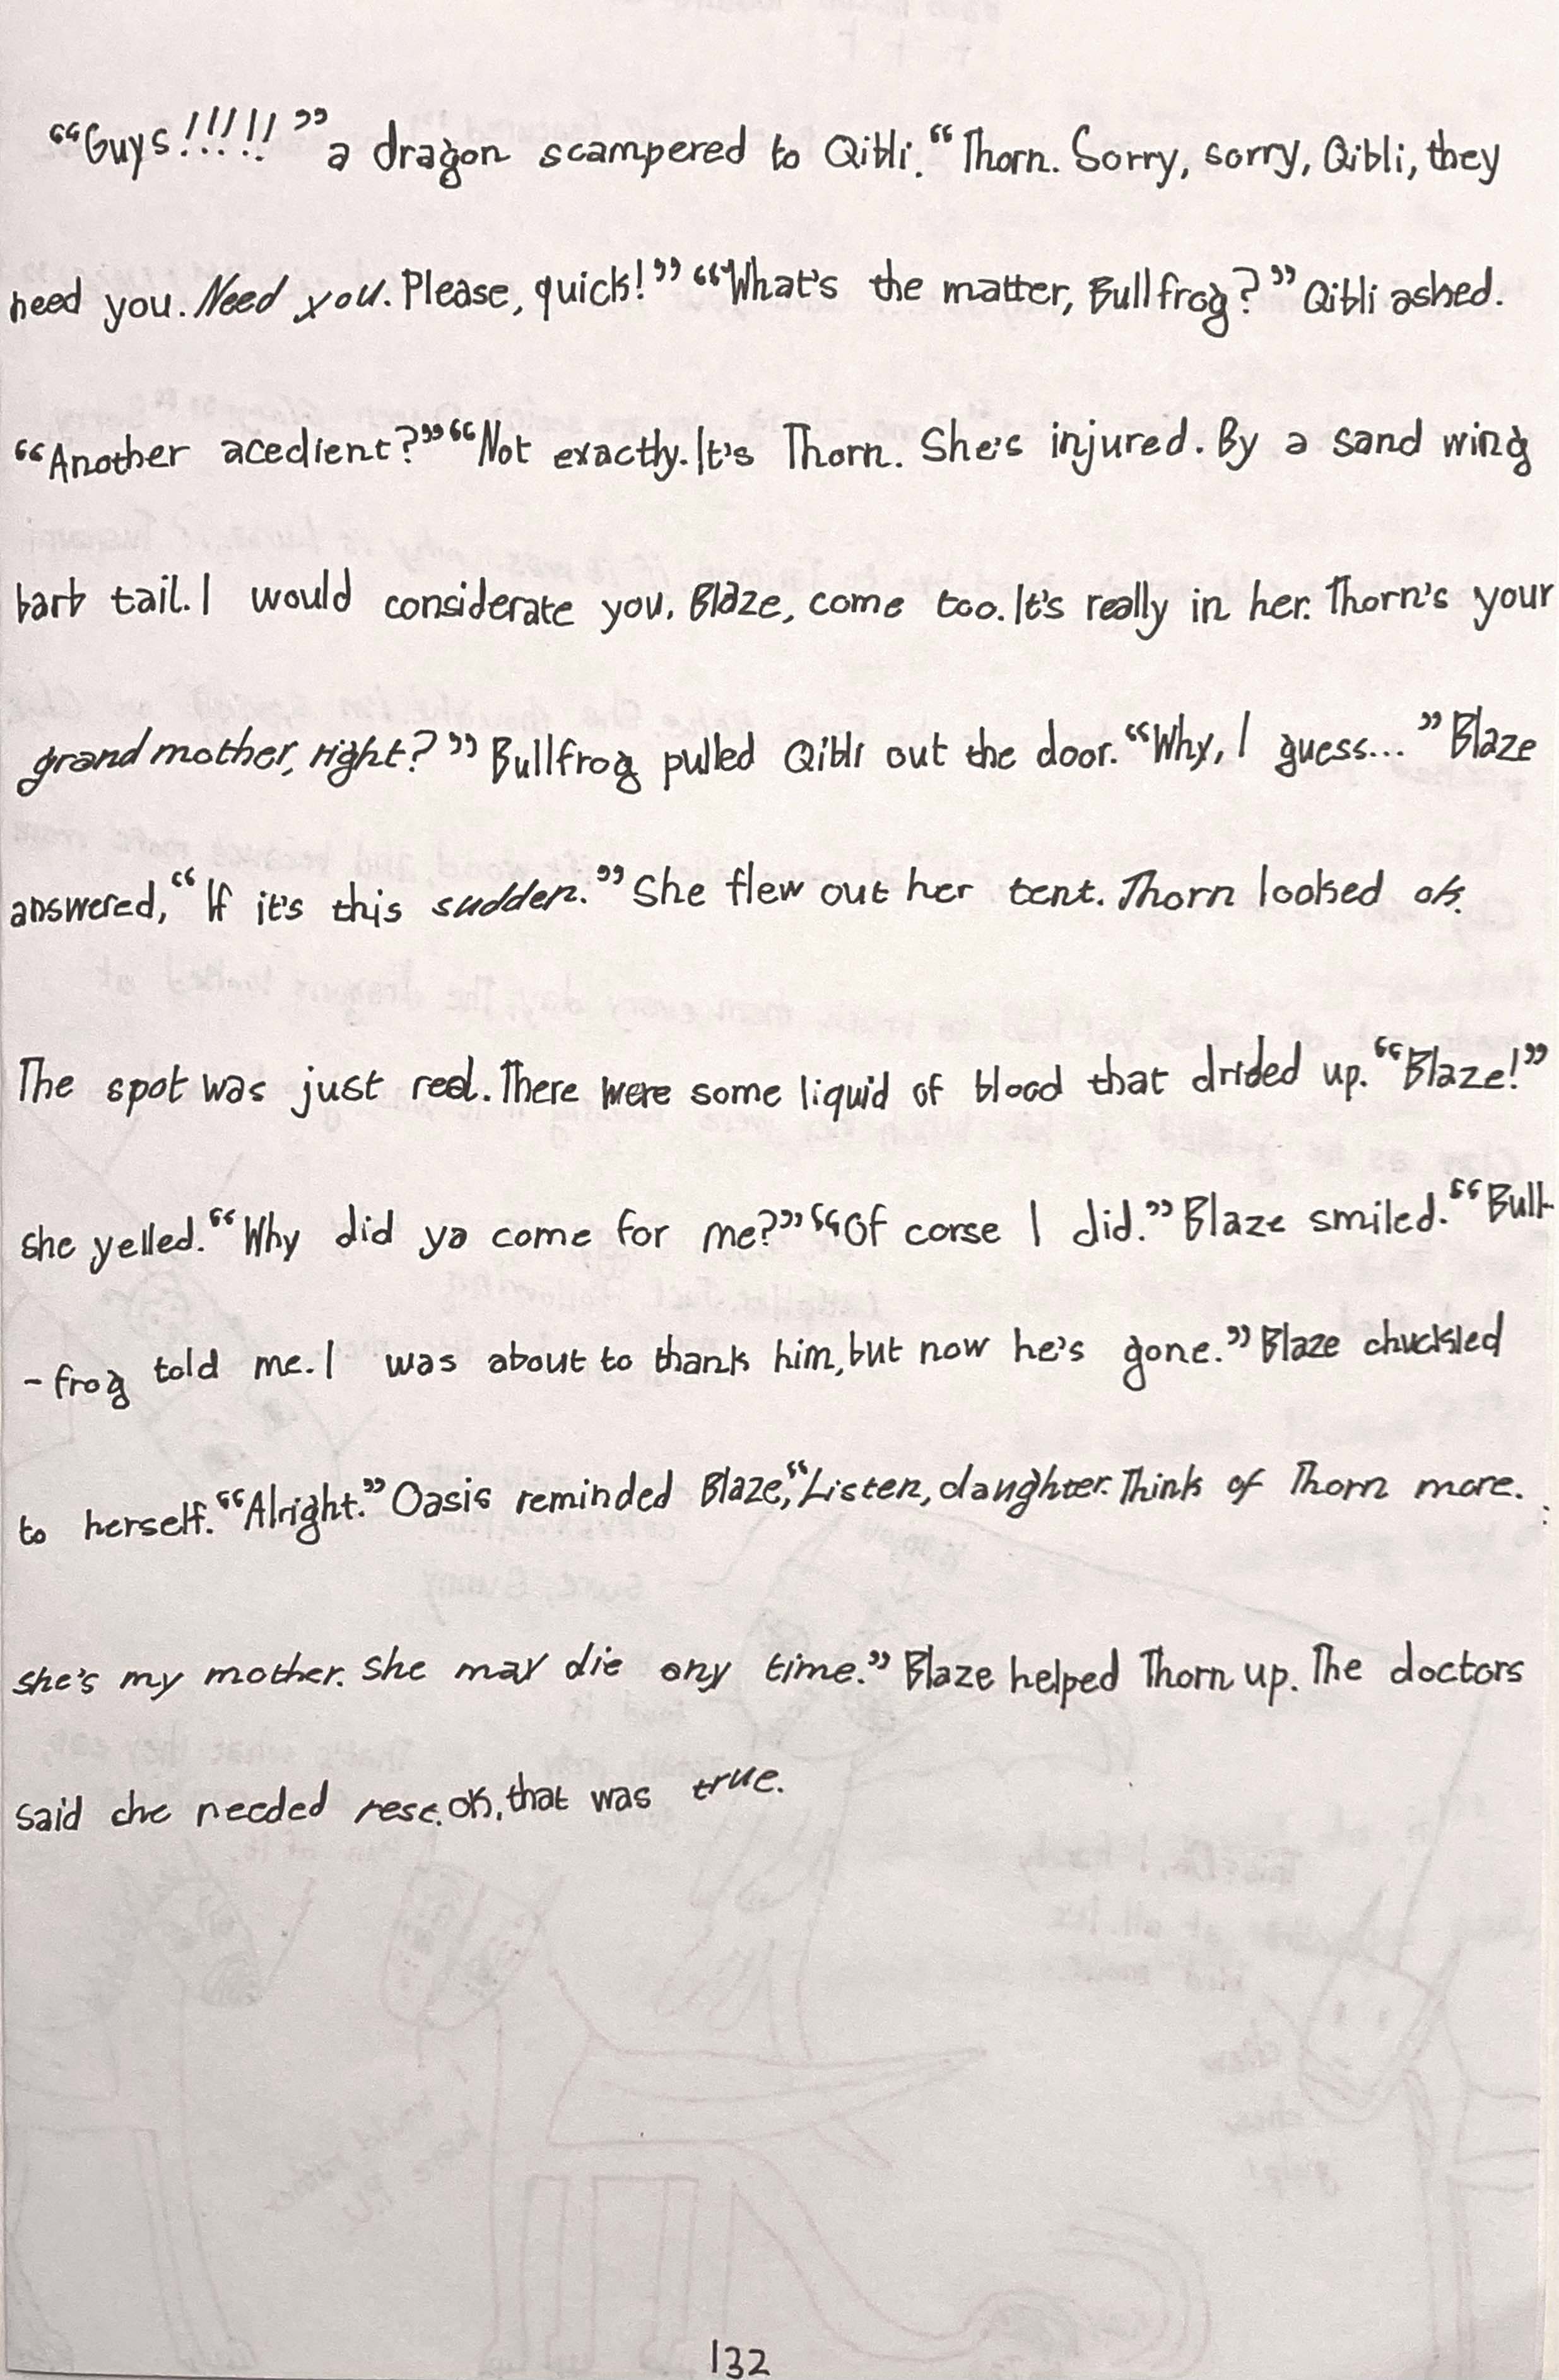 “Guys!!!!!” a dragon scampered to Qibli. “Thorn. Sorry, sorry, Qibli, they
need you. Need you. Please, quick!” “What's the matter, Bullfrog?” Qibli asked.
“Another acedient?” “Not exactly. It's Thorn. She's injured. By a sand wing
barb tail. I would considerate you. Blaze, come too. It's really in her. Thorn's your
grandmother, right?” Bullfrog pulled Qibli out the door. “Why, I guess...” Blaze
answered, “If it's this sudden.” She flew out her tent. Thorn looked ok.
The spot was just red. There were some liquid of blood that drided up. “Blaze!”
she yelled. “Why did ya come for me?” “Of corse I did.” Blaze smiled. “Bull-
-frog told me. I was about to thank him, but now he's gone.” Blaze chuckled
to herself. “Alright.” Oasis reminded Blaze, “Listen, daughter. Think of Thorn more.
she's my mother. She may die any time.” Blaze helped Thorn up. The doctors
said she needed rest. Ok, that was true.
132